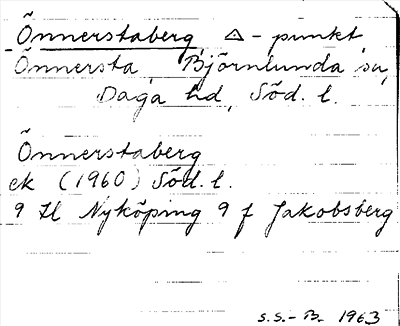 Önnerstaberg, △-punkt
Önnersta, Björnlunda sn,
Daga hd, Söd. l.
Önnerstaberg
ek (1960) Söd. l.
9 H Nyköping 9 f Jakobsberg
S.S.-B. 1963